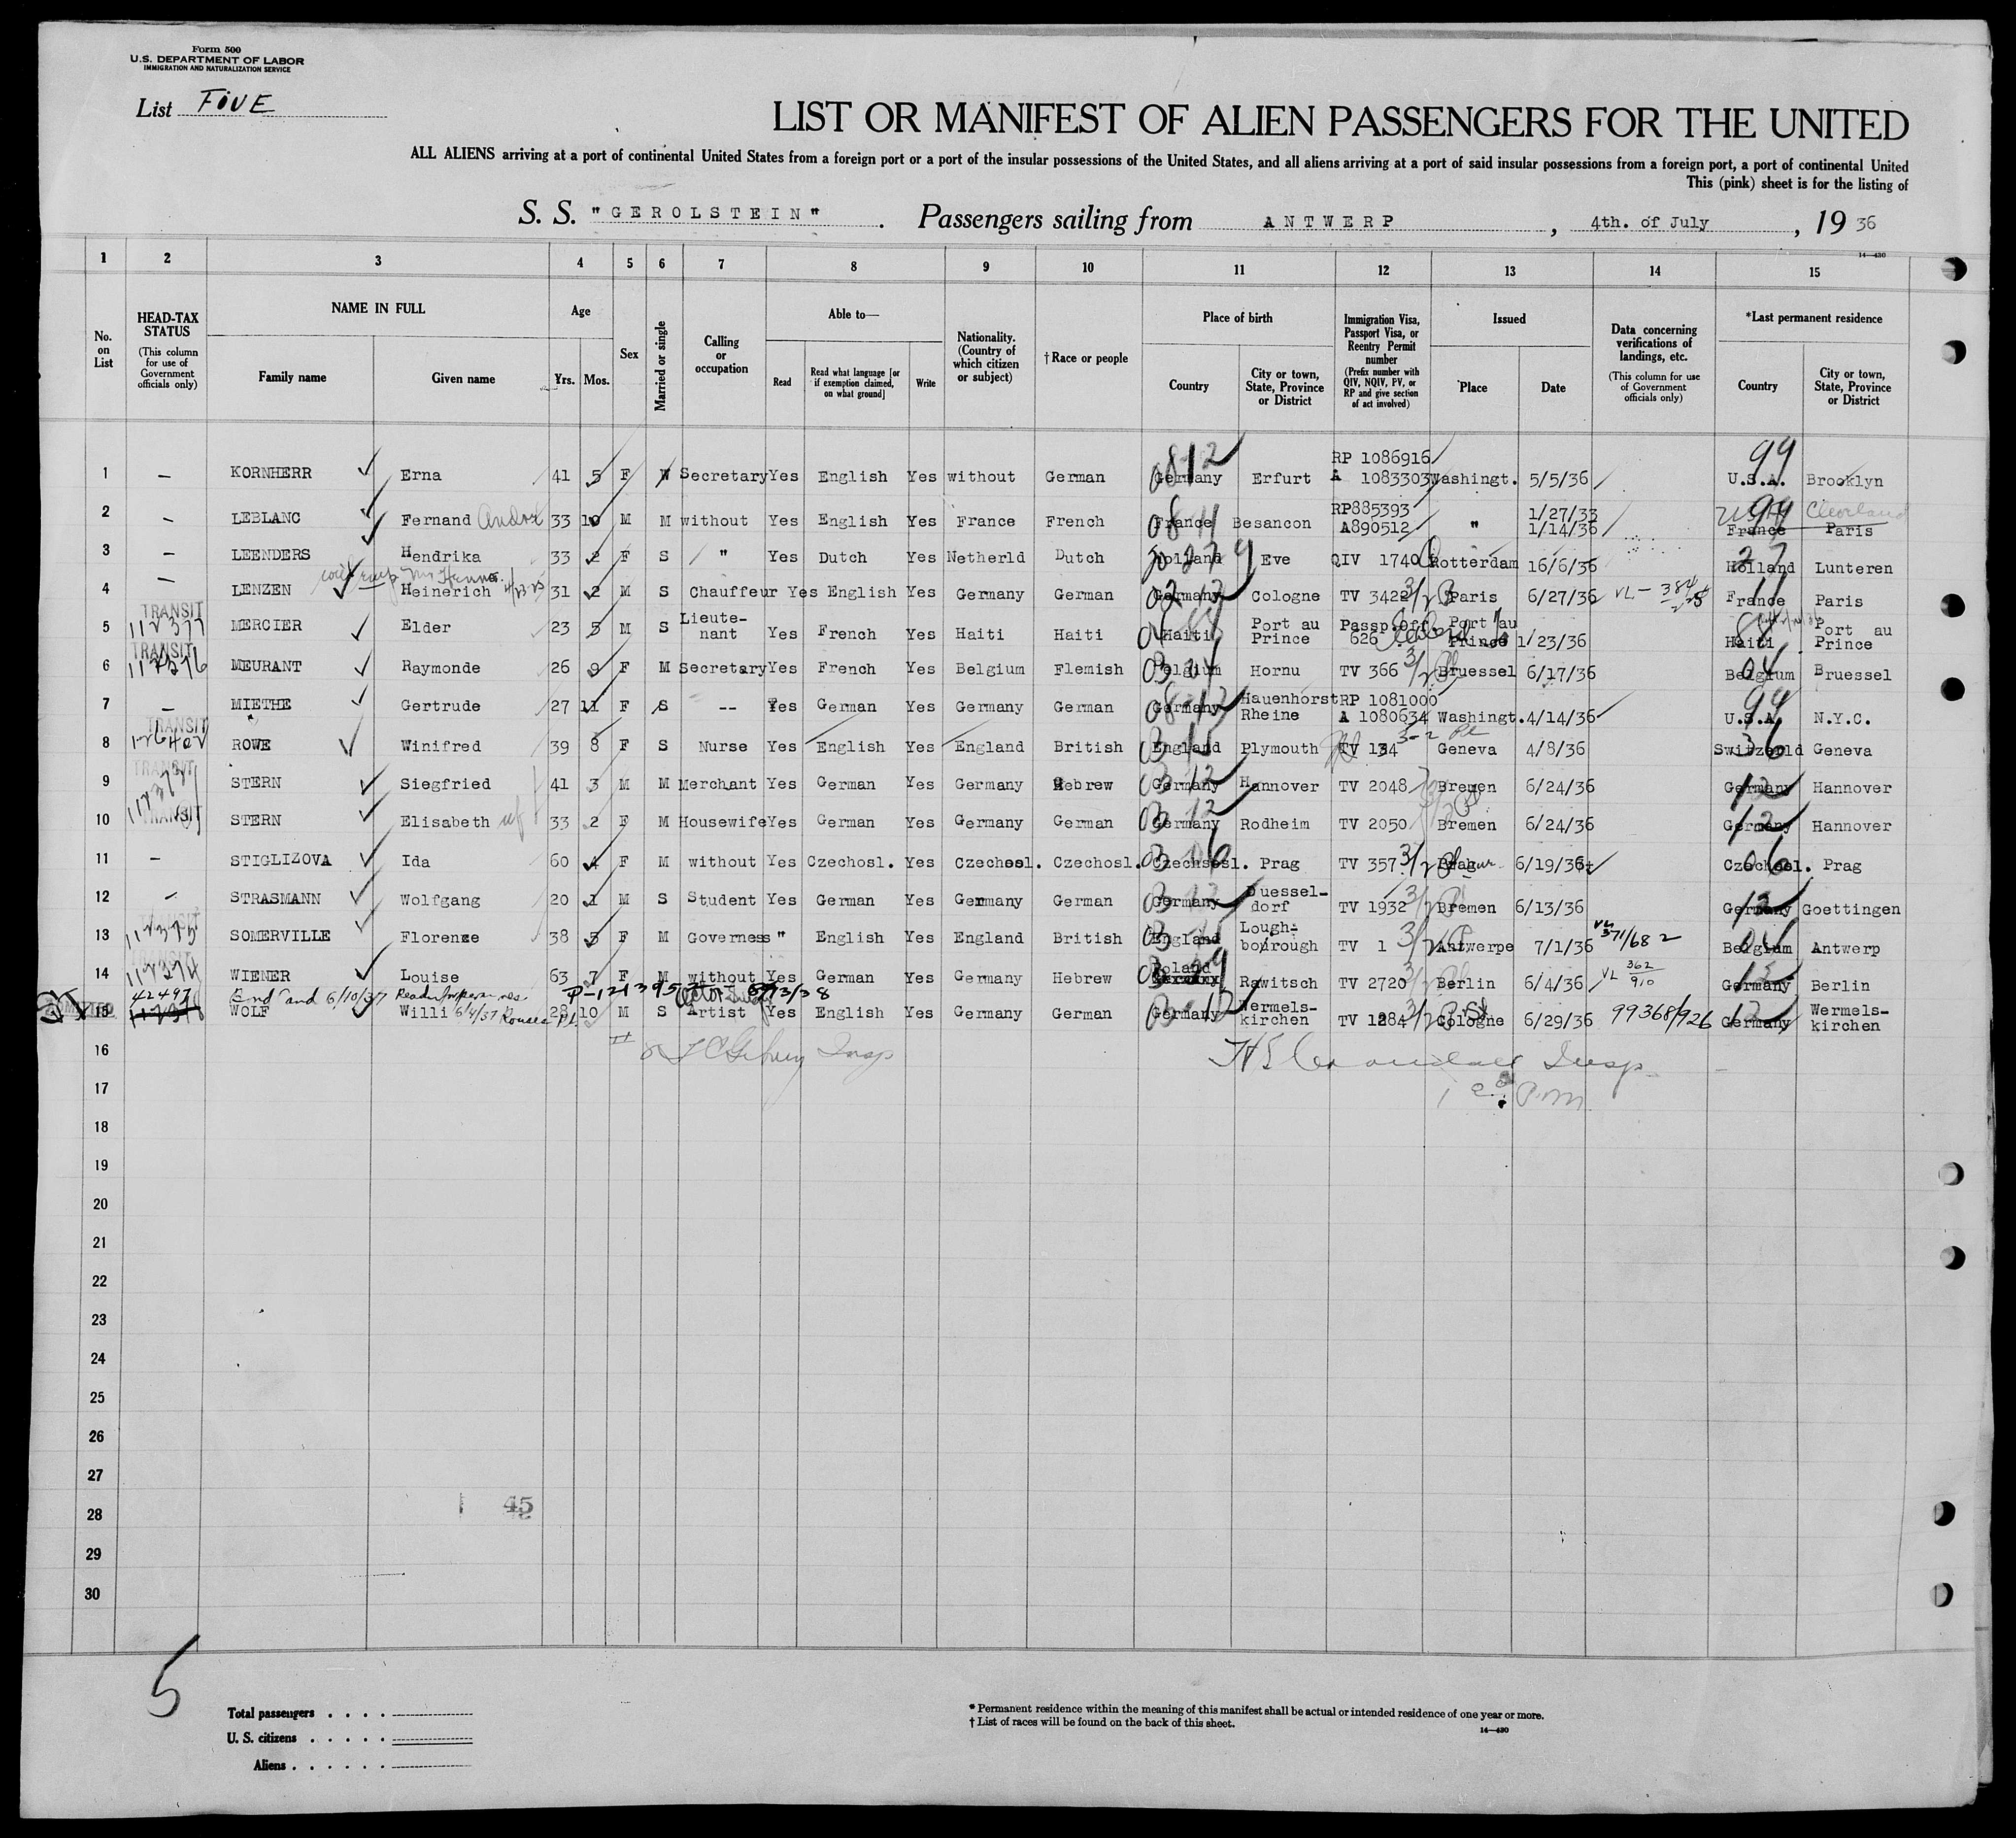 Form 500
U.S. DEPARTMENT OF LABOR
IMMIGRATION AND NATURALIZATION SERVICE
List FIVE
LIST OR MANIFEST OF ALIEN PASSENGERS FOR THE UNITED
ALL ALIENS arriving at a port of continental United States from a foreign port or a port of the insular possessions of the United States, and all aliens arriving at a port of said insular possessions from a foreign port, a port of continental United
This (pink) sheet is for the listing of
S. S. "GEROLSTEIN". Passengers sailing from ANTWERP, 4th. of July, 19 36
14—430
1 2 3 4 5 6 7 8 9 10 11 12 13 14 15
No. on List
HEAD-TAX STATUS (This column for use of Government officials only)
NAME IN FULL Family name Given name
Age Yrs. Mos.
Sex
Married or single
Calling or occupation
Able to— Read Read what language [or if exemption claimed, on what ground] Write
Nationality. (Country of which citizen or subject)
† Race or people
Place of birth Country City or town, State, Province or District
Immigration Visa, Passport Visa, or Reentry Permit number (Prefix number with QIV, NQIV, PV, or RP and give section of act involved)
Issued Place Date
Data concerning verifications of landings, etc. (This column for use of Government officials only)
*Last permanent residence Country City or town, State, Province or District
1 — KORNHERR Erna 41 5 F W Secretary Yes English Yes without German Germany Erfurt RP 1086916 A 1083303 Washingt. 5/5/36 99 U.S.A. Brooklyn
2 — LEBLANC Fernand 33 10 M M without Yes English Yes France French France Besancon RP885393 A890512 " 1/27/33 1/14/36 99 Cleveland France Paris
3 — LEENDERS Hendrika 33 2 F S " Yes Dutch Yes Netherld Dutch Holland Eve QIV 1740 Rotterdam 16/6/36 27 Holland Lunteren
4 — LENZEN Heinerich 31 2 M S Chauffeur Yes English Yes Germany German Germany Cologne TV 3422 Paris 6/27/36 VL - 384 France Paris
5 TRANSIT 112377 MERCIER Elder 23 5 M S Lieute- nant Yes French Yes Haiti Haiti Haiti Port au Prince Passp.Off 626 Port au Prince 1/23/36 Haiti Port au Prince
6 TRANSIT 112376 MEURANT Raymonde 26 9 F M Secretary Yes French Yes Belgium Flemish Belgium Hornu TV 366 Bruessel 6/17/36 04 Belgium Bruessel
7 — MIETHE Gertrude 27 11 F S -- Yes German Yes Germany German Germany Hauenhorst Rheine RP 1081000 A 1080634 Washingt. 4/14/36 99 U.S.A. N.Y.C.
8 TRANSIT 126402 ROWE Winifred 39 8 F S Nurse Yes English Yes England British England Plymouth TV 134 Geneva 4/8/36 36 Switzerld Geneva
9 TRANSIT STERN Siegfried 41 3 M M Merchant Yes German Yes Germany Hebrew Germany Hannover TV 2048 Bremen 6/24/36 12 Germany Hannover
10 TRANSIT STERN Elisabeth wf 33 2 F M Housewife Yes German Yes Germany German Germany Rodheim TV 2050 Bremen 6/24/36 12 Germany Hannover
11 — STIGLIZOVA Ida 60 4 F M without Yes Czechosl. Yes Czechosl. Czechosl. Czechosl. Prag TV 357 6/19/36 06 Czechosl. Prag
12 — STRASMANN Wolfgang 20 1 M S Student Yes German Yes Germany German Germany Duessel- dorf TV 1932 Bremen 6/13/36 12 Germany Goettingen
13 TRANSIT 112375 SOMERVILLE Florence 38 5 F M Governess " English Yes England British England Lough- borough TV 1 Antwerpe 7/1/36 371/682 04 Belgium Antwerp
14 TRANSIT 112374 WIENER Louise 63 7 F M without Yes German Yes Germany Hebrew Poland Rawitsch TV 2720 Berlin 6/4/36 VL 362/910 12 Germany Berlin
42497 6/10/37 P-121395
15 WOLF Willi 6/4/37 28 10 M S Artist Yes English Yes Germany German Germany Wermels- kirchen TV 1284 Cologne 6/29/36 99368/926 12 Germany Wermels- kirchen
16
17
18
19
20
21
22
23
24
25
26
27
28
29
30
45
5
Total passengers
U. S. citizens
Aliens
* Permanent residence within the meaning of this manifest shall be actual or intended residence of one year or more.
† List of races will be found on the back of this sheet.
14—430